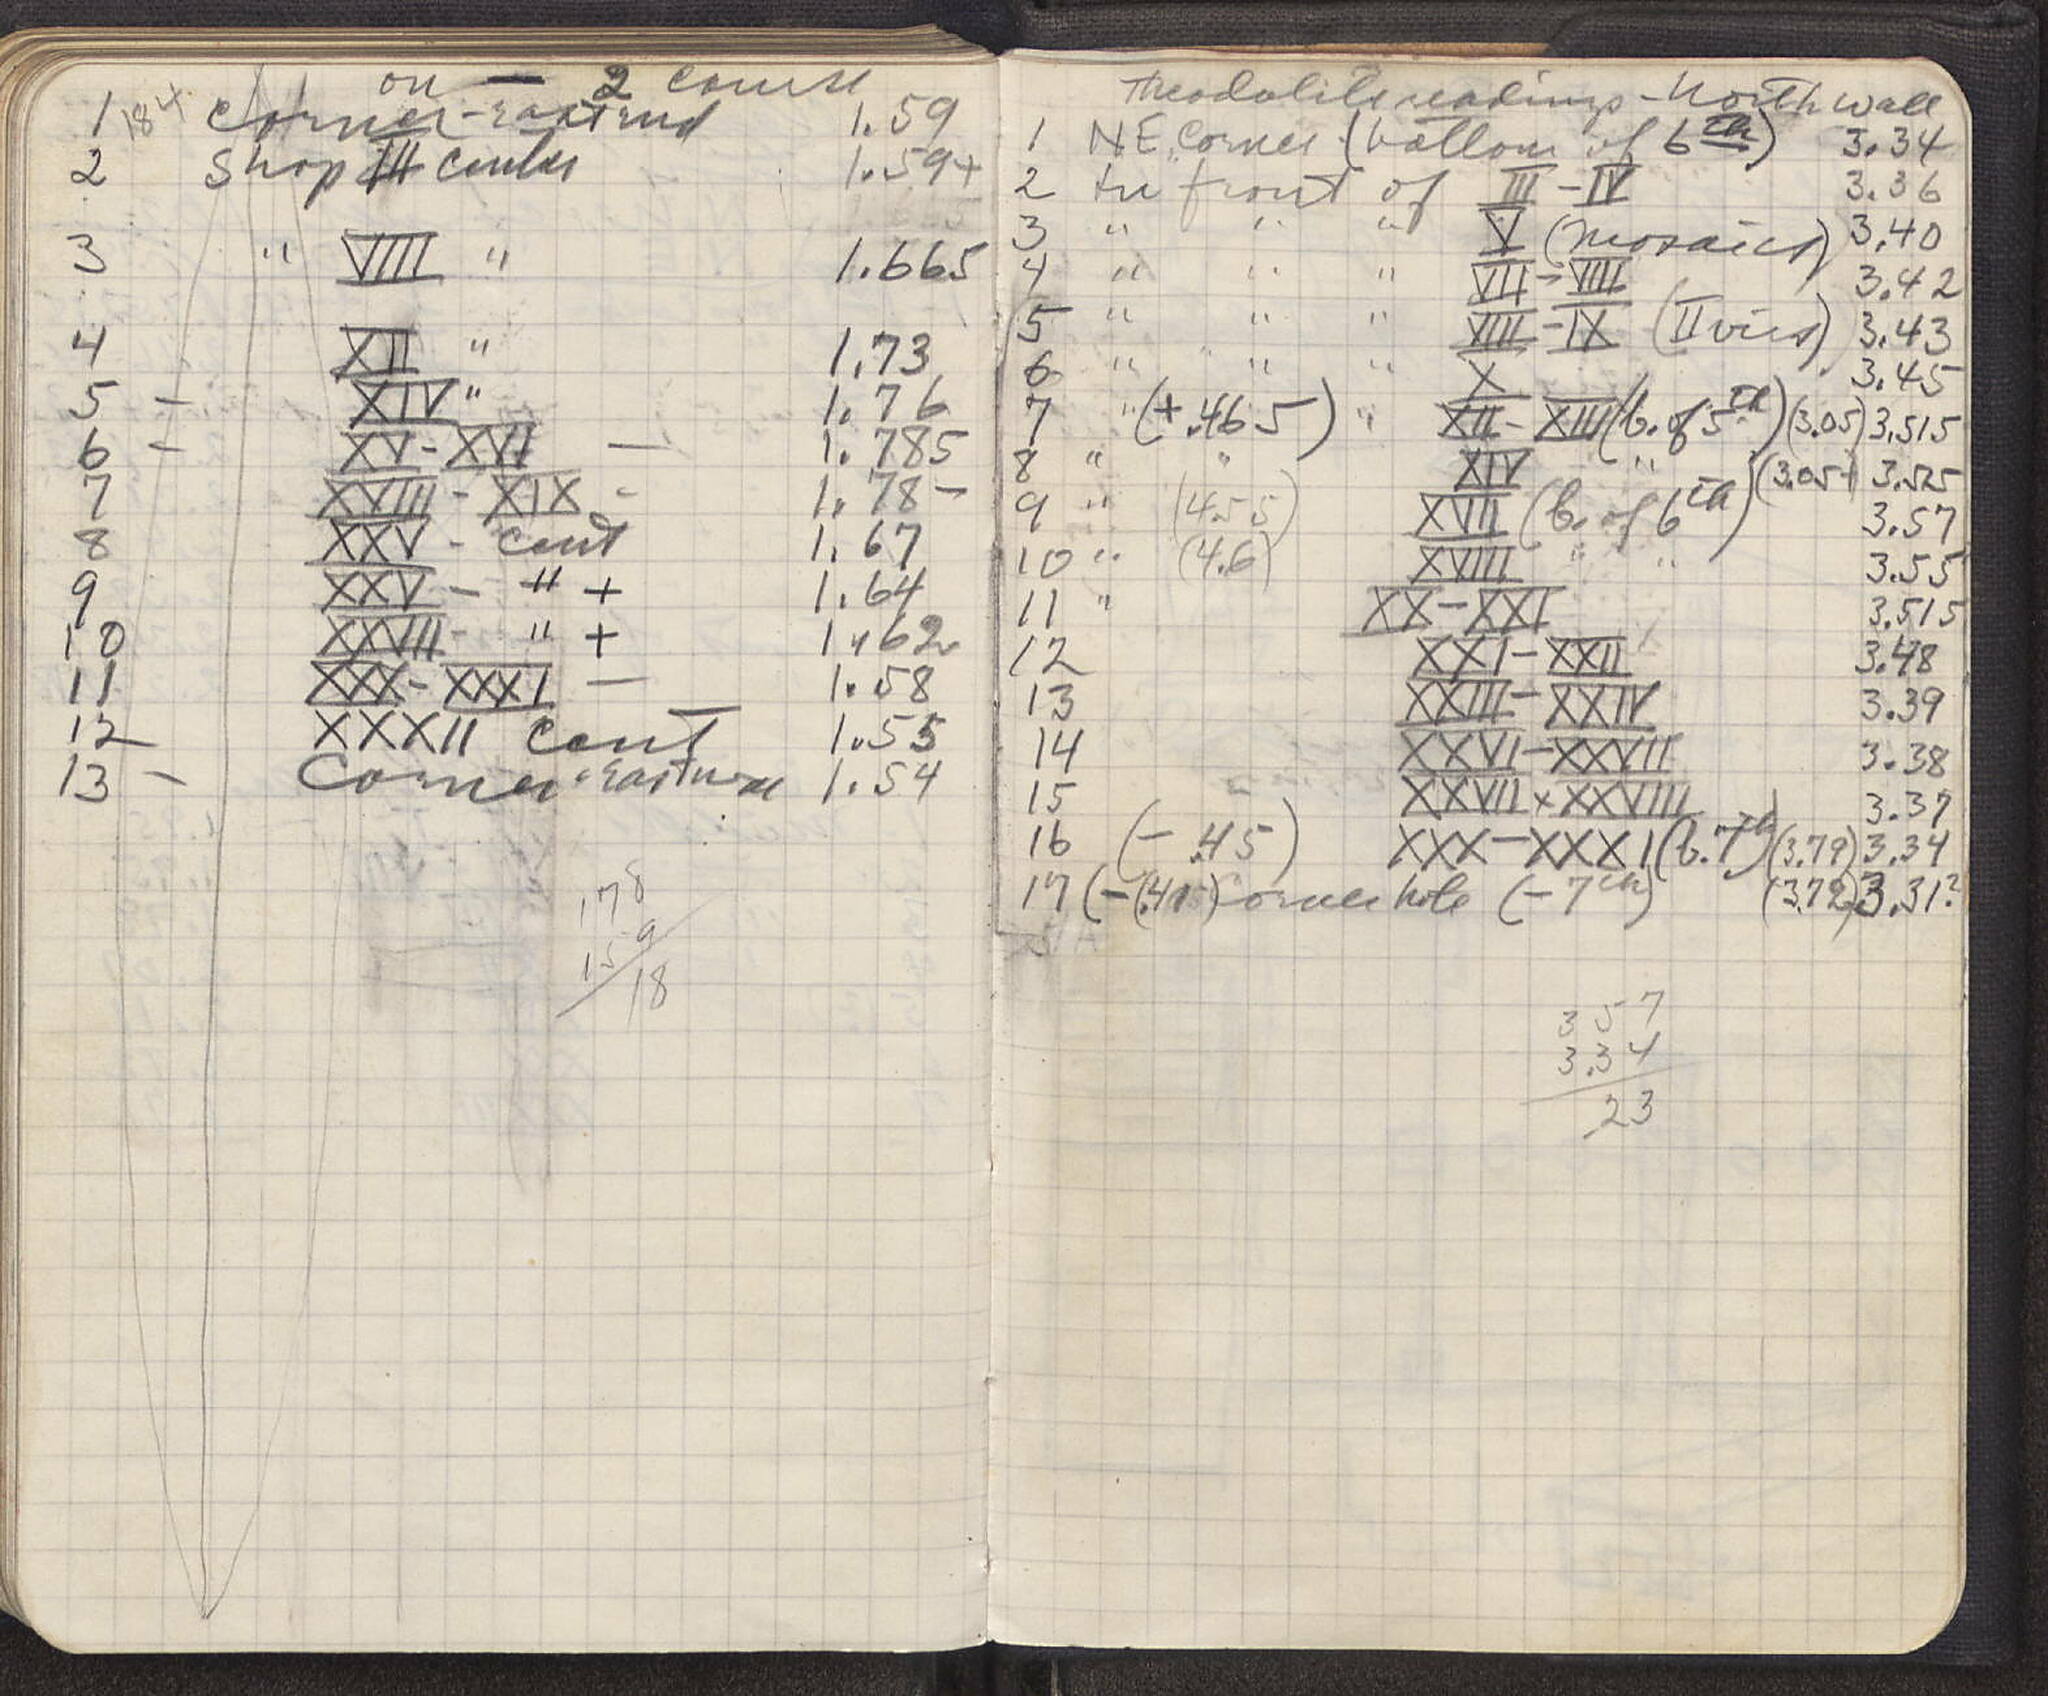 on — 2 course
1 184 Corner - East end 1.59
2 Shop III center 1.59+
3 " VIII " 1.665
4 XII " 1.73
5 - XIV " 1.76
6 - XV - XVI — 1.785
7 XVIII - XIX - 1.78-
8 XXV - cent 1.67
9 XXV - " + 1.64
10 XXVII - " + 1.62
11 XXX - XXXI — 1.58
12 XXXII cent 1.55
13 - Corner 1.54
178
159
18
Theodolite readings - North wall
1 NE. Corner (bottom of 6th) 3.34
2 In front of III - IV 3.36
3 " " " V (Mosaics) 3.40
4 " " " VII - VIII 3.42
5 " " " VIII - IX (IIvirs) 3.43
6 " " " X 3.45
7 " (+.465) " XII - XIII (b. of 5th) (3.05) 3.515
8 " " XIV " (3.05+) 3.525
9 " (4.55) XVII (b. of 6th) 3.57
10 " (4.6) XVIII " " 3.55
11 " XX - XXI 3.515
12 XXI - XXII 3.48
13 XXIII - XXIV 3.39
14 XXVI - XXVII 3.38
15 XXVII x XXVIII 3.37
16 (- .45) XXX - XXXI (b. 7th) (3.79) 3.34
17 Corner hole (- 7th) (3.72) 3.31?
3 57
3.34
23